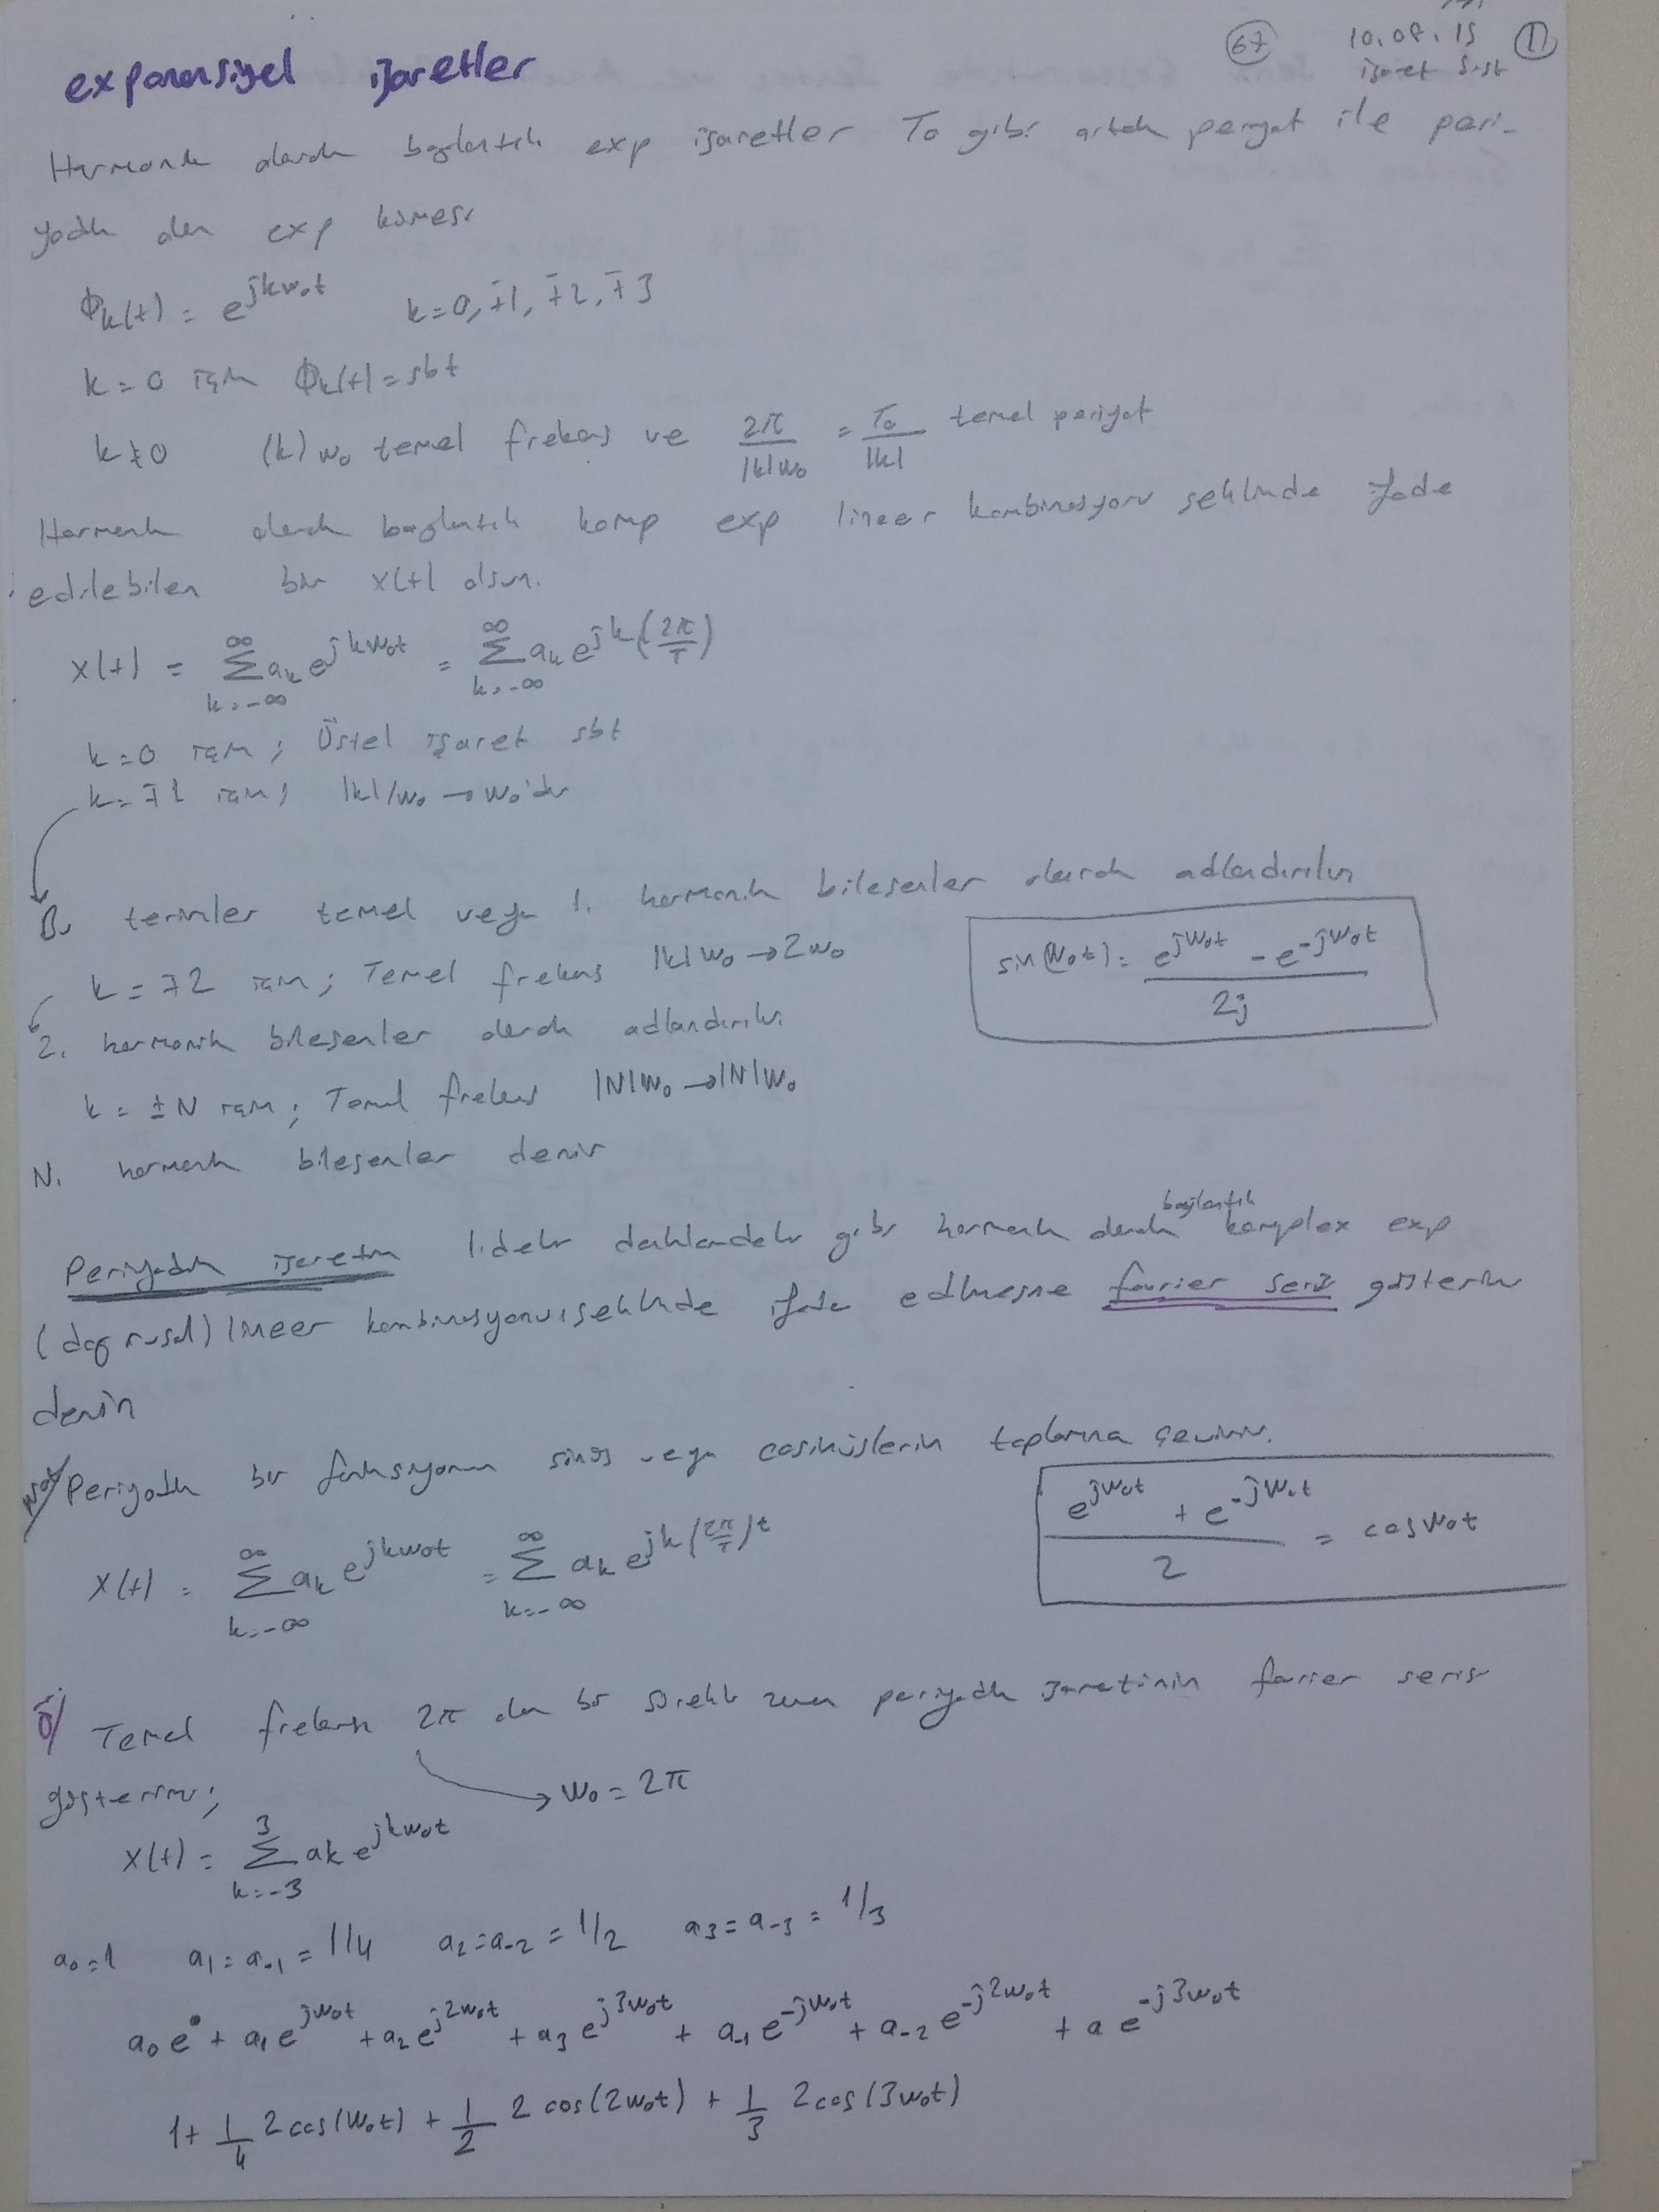 67
10.08.15 1
işaret sist
exponansiyel işaretler
Harmonik olarak bağlantılı exp işaretler To gibi ortak periyot ile peri-
yodik olan exp kümesi
Φk(t) = e^{jkw₀t} k=0,∓1,∓2,∓3
k=0 için Φk(t)=sbt
k≠0 (k)w₀ temel frekans ve 2π/|k|w₀ = T₀/|k| temel periyot
Harmonik olarak bağlantılı komp exp lineer kombinasyonu şeklinde ifade
edilebilen bir x(t) olsun.
x(t) = ∞Σk=-∞ ak e^{jkw₀t} = ∞Σk=-∞ ak e^{jk(2π/T)}
k=0 için; Üstel işaret sbt
k=∓1 için; |k|/w₀ → w₀'dır
Bu terimler temel veya 1. harmonik bileşenler olarak adlandırılır
k=∓2 için; Temel frekans |k|w₀→2w₀
sin(w₀t) = (e^{jw₀t} - e^{-jw₀t})/2j
2. harmonik bileşenler olarak adlandırılır.
k=±N için; Temel frekans |N|w₀→|N|w₀
N. harmonik bileşenler denir
Periyodik işaretin 1.deki denklemdeki gibi harmonik olarak bağlantılı komplex exp
(doğrusal) lineer kombinasyonu şeklinde ifade edilmesine fourier serisi gösterim
denir
Not/ Periyodik bir fonksiyonun sinüs veya cosinüslerin toplamına çevirir.
x(t) = ∞Σk=-∞ ak e^{jkw₀t} = ∞Σk=-∞ ak e^{jk(2π/T)t}
(e^{jw₀t} + e^{-jw₀t})/2 = cosw₀t
ö/ Temel frekansı 2π olan bir sürekli zaman periyodik işaretinin fourier serisi
gösterimi;
w₀=2π
x(t) = 3Σk=-3 ak e^{jkw₀t}
a₀=1 a₁=a₋₁=1/4 a₂=a₋₂=1/2 a₃=a₋₃=1/3
a₀e⁰ + a₁e^{jw₀t} + a₂e^{j2w₀t} + a₃e^{j3w₀t} + a₋₁e^{-jw₀t} + a₋₂e^{-j2w₀t} + a e^{-j3w₀t}
1+ 1/4 2cos(w₀t) + 1/2 2cos(2w₀t) + 1/3 2cos(3w₀t)